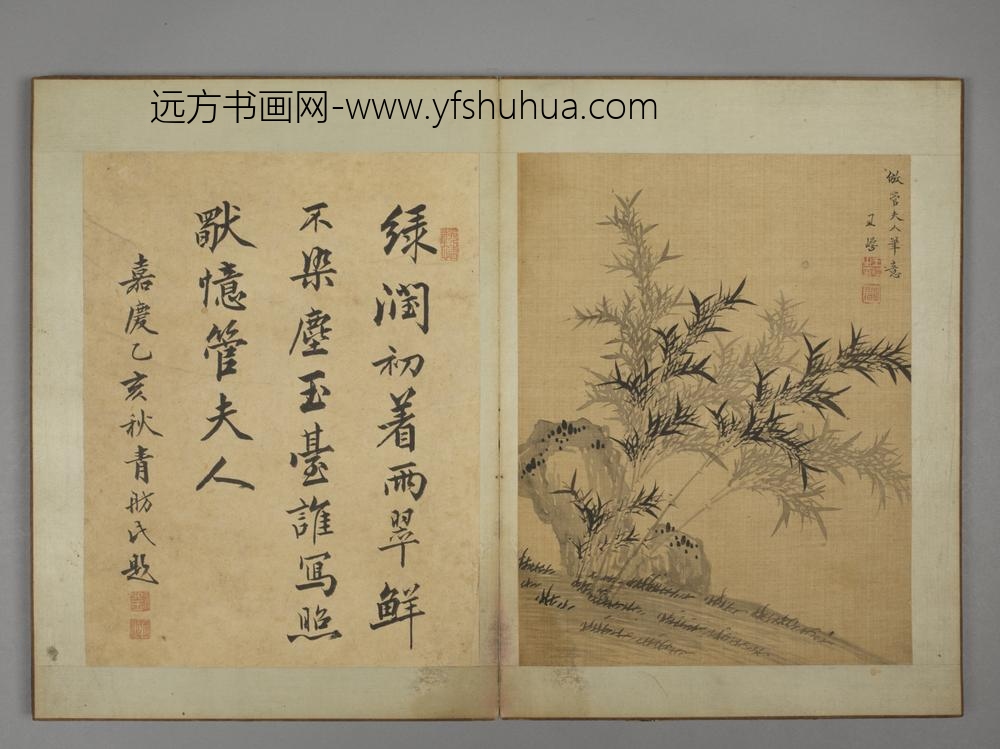 远方书画网-www.yfshuhua.com
倣管夫人筆意
又學
绿潤初着雨翠鲜
不染塵玉臺誰寫照
猒憶管夫人
嘉慶乙亥秋青舫氏題